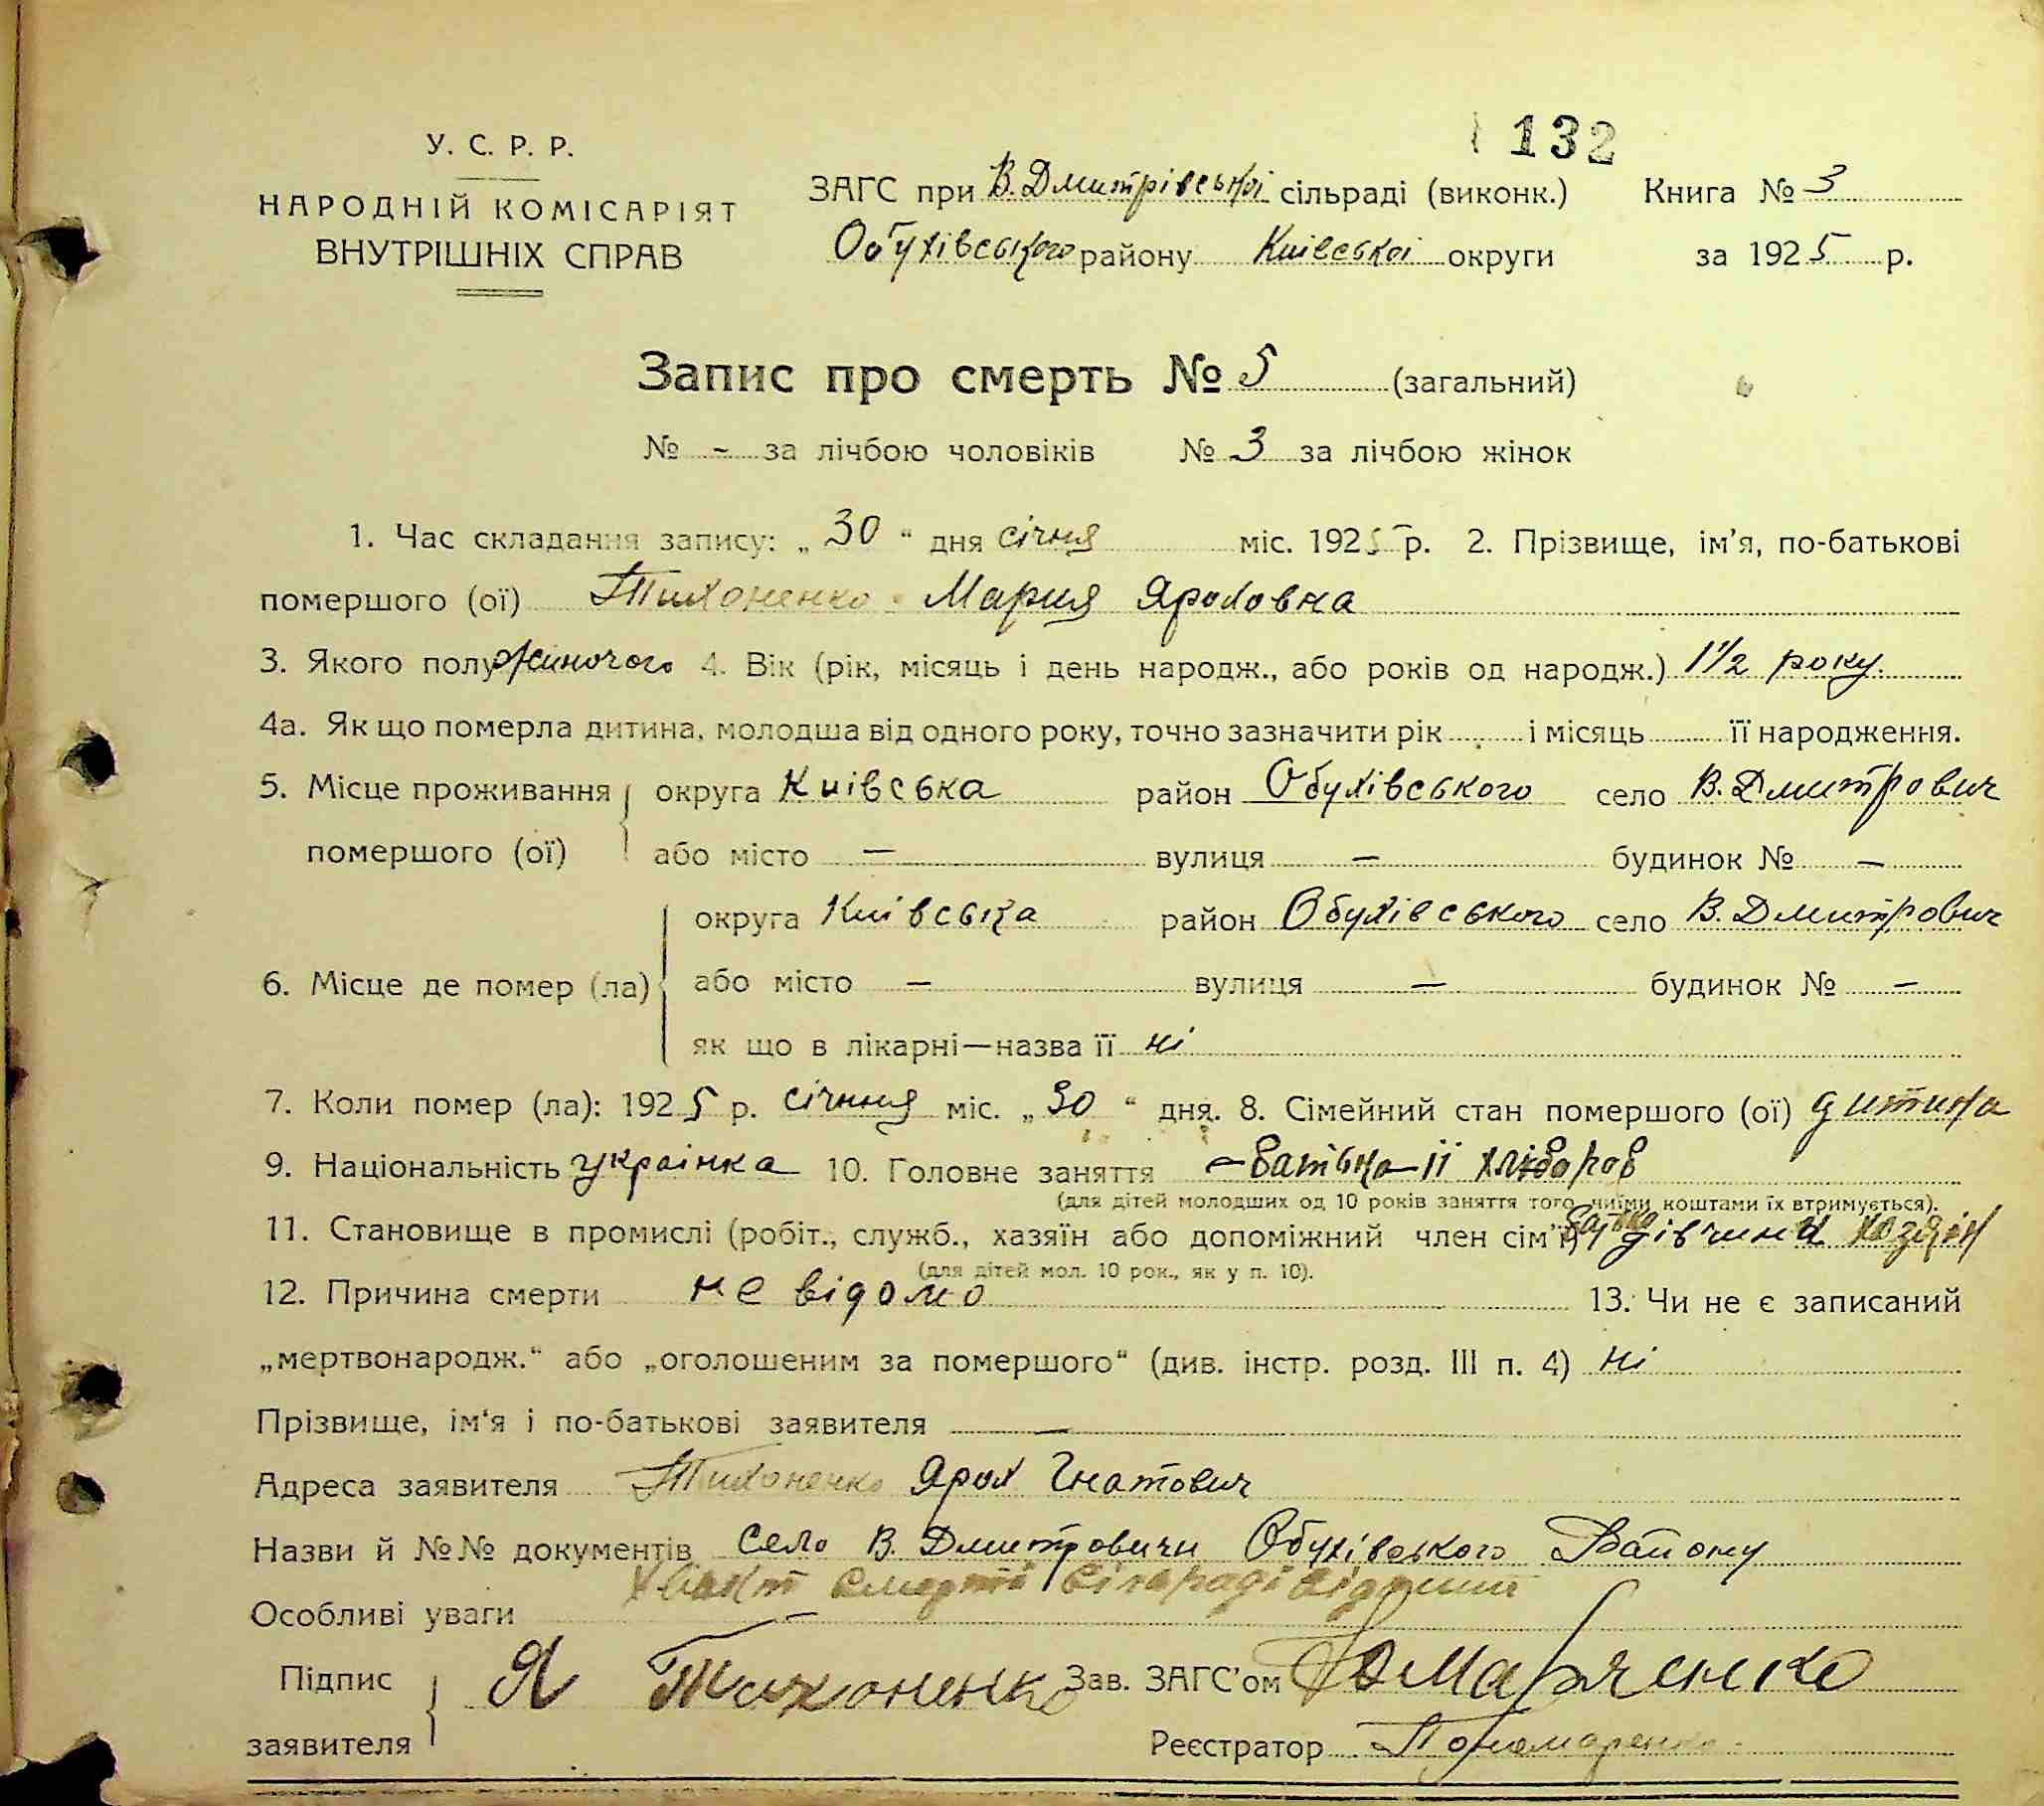 132
У. С. Р. Р.
НАРОДНІЙ КОМІСАРІЯТ
ВНУТРІШНІХ СПРАВ
ЗАГС при В. Дмитрівської сільраді (виконк.) Книга № 3
Обухівського району Київської округи за 1925 р.
Запис про смерть № 5 (загальний)
№ - за лічбою чоловіків № 3 за лічбою жінок
1. Час складання запису: „30“ дня січня міс. 1925 р. 2. Прізвище, ім’я, по-батькові
помершого (ої) Тихоненко Мария Яроховна
3. Якого полу жиночого 4. Вік (рік, місяць і день народж., або років од народж.) 1½ року.
4а. Як що померла дитина, молодша від одного року, точно зазначити рік і місяць її народження.
5. Місце проживання помершого (ої) округа Київська район Обухівського село В. Дмитрович
або місто — вулиця — будинок № —
6. Місце де помер (ла) округа Київська район Обухівського село В. Дмитрович
або місто — вулиця — будинок № —
як що в лікарні—назва її ні
7. Коли помер (ла): 1925 р. січння міс. „30“ дня. 8. Сімейний стан помершого (ої) дитина
9. Національність украінка 10. Головне заняття батька іі хлібороб
(для дітей молодших од 10 років заняття того, чиїми коштами їх втримується).
11. Становище в промислі (робіт., служб., хазяїн або допоміжний член сім’ї) дівчини хозяін
(для дітей мол. 10 рок., як у п. 10).
12. Причина смерти не відомо 13. Чи не є записаний
„мертвонародж.“ або „оголошеним за помершого“ (див. інстр. розд. III п. 4) ні
Прізвище, ім‘я і по-батькові заявителя —
Адреса заявителя Тихоненко Ярох Гнатович
Назви й №№ документів село В. Дмитровичи Обухівського Району
хвакт смерти сільраді відомий
Особливі уваги —
Підпис заявителя Я Тихоненко Зав. ЗАГС’ом
Реєстратор Пономаренко